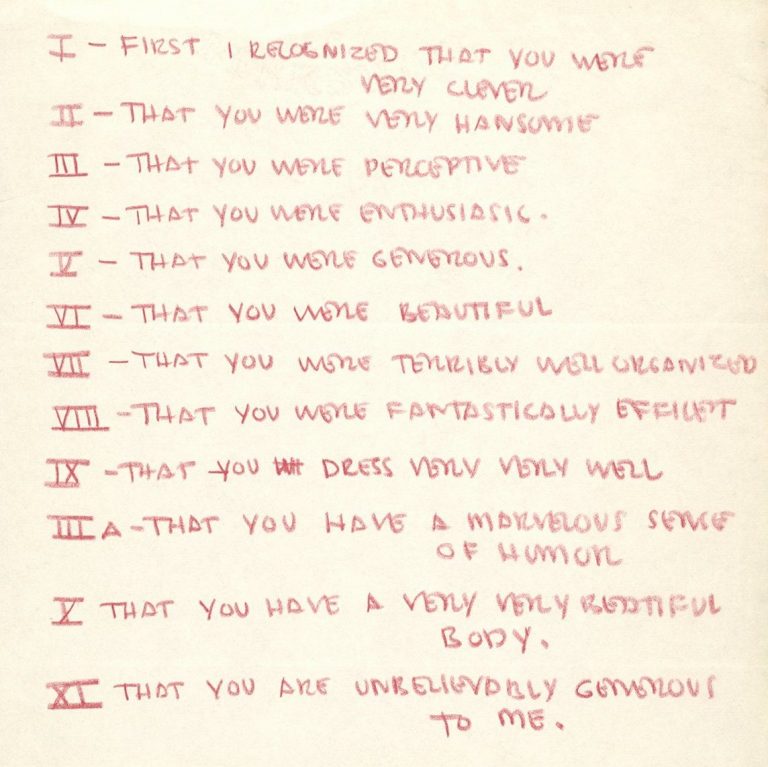 I - FIRST I RECOGNIZED THAT YOU WERE
VERY CLEVER
II - THAT YOU WERE VERY HANSOME
III - THAT YOU WERE PERCEPTIVE
IV - THAT YOU WERE ENTHUSIASIC.
V - THAT YOU WERE GENEROUS.
VI - THAT YOU WERE BEAUTIFUL
VII - THAT YOU WERE TERRIBLY WELL ORGANIZED
VIII - THAT YOU WERE FANTASTICALLY
IX - THAT YOU DRESS VERY VERY WELL
III A - THAT YOU HAVE A MARVELOUS SENSE
OF HUMOR
X THAT YOU HAVE A VERY VERY BEATIFUL
BODY.
XI THAT YOU ARE UNBELIEVABLY GENEROUS
TO ME.